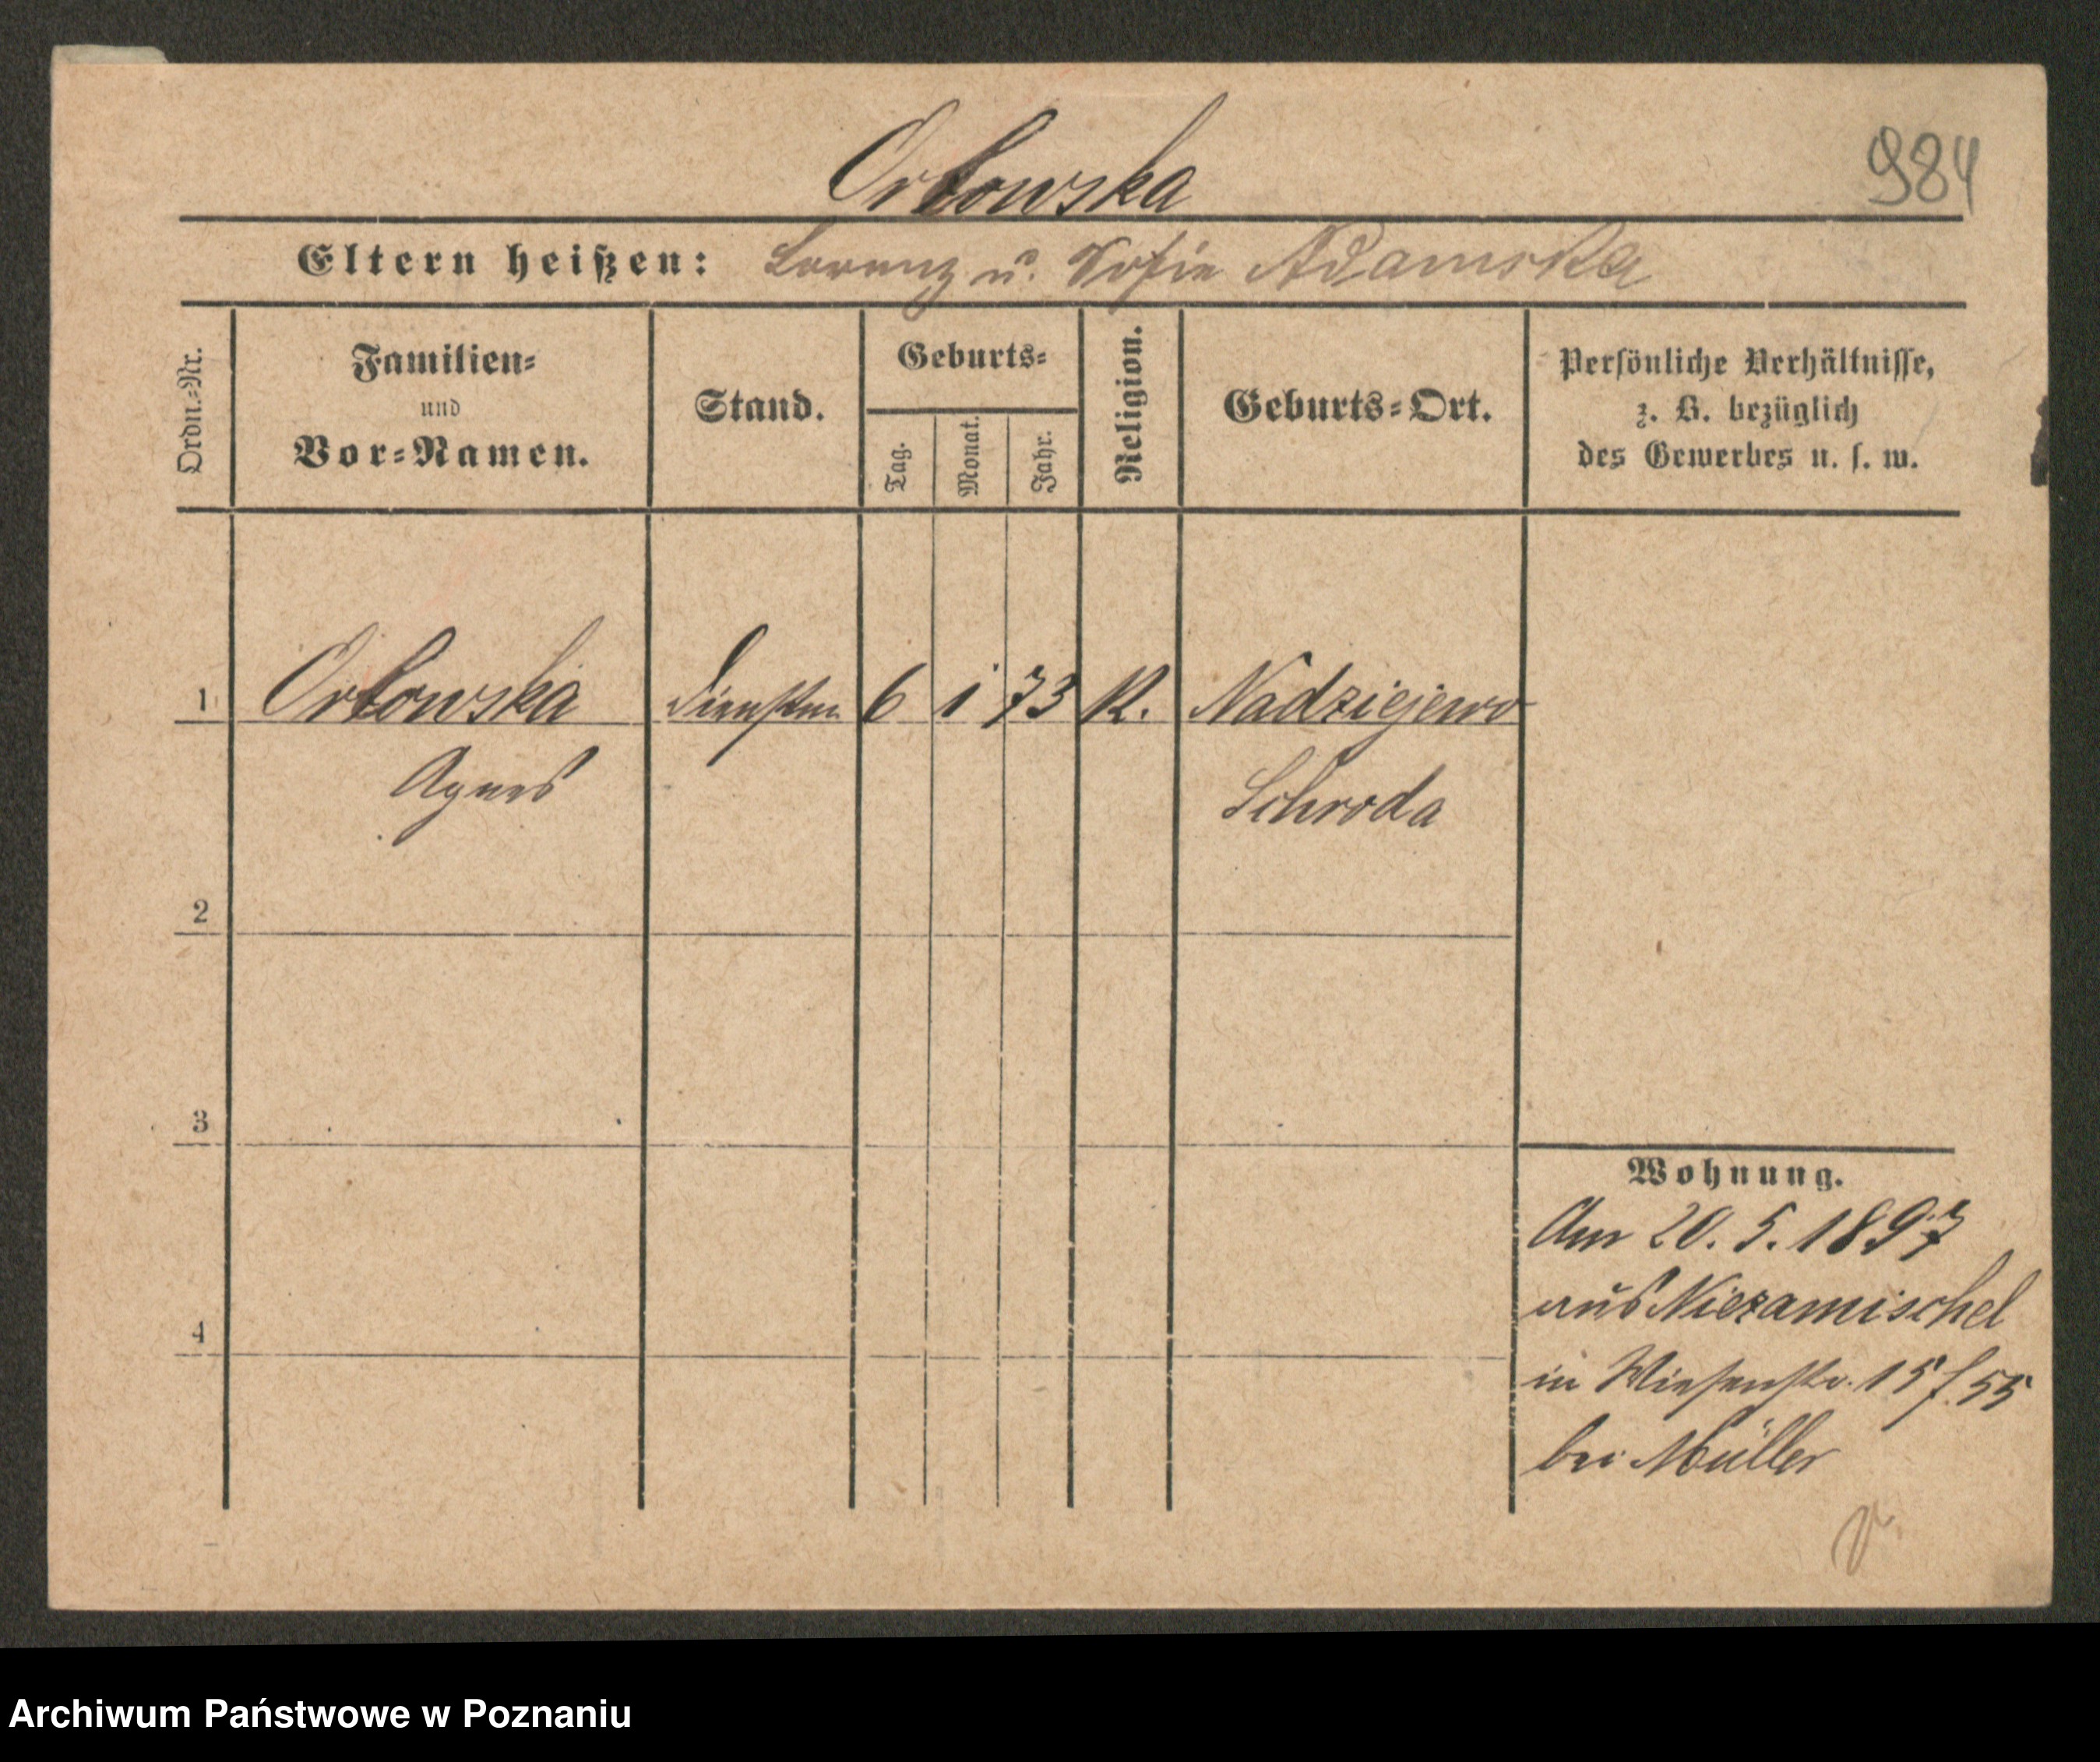 Orłowska
984
Eltern heißen: Lorenz u. Sofie Adamska
Ordn.-Nr.
Familien-
und
Vor-Namen.
Stand.
Geburts-
Tag.
Monat.
Jahr.
Religion.
Geburts-Ort.
Persönliche Verhältnisse,
z. B. bezüglich
des Gewerbes u. s. w.
1 Orłowska 6 1 73 K. Nadziejewo
Agnes Schroda
2
3
4
Wohnung.
Am 20. 5. 1897
aus Niezamischel
in Wiesenstr. 15 f. 55
bei Müller
Archiwum Państwowe w Poznaniu